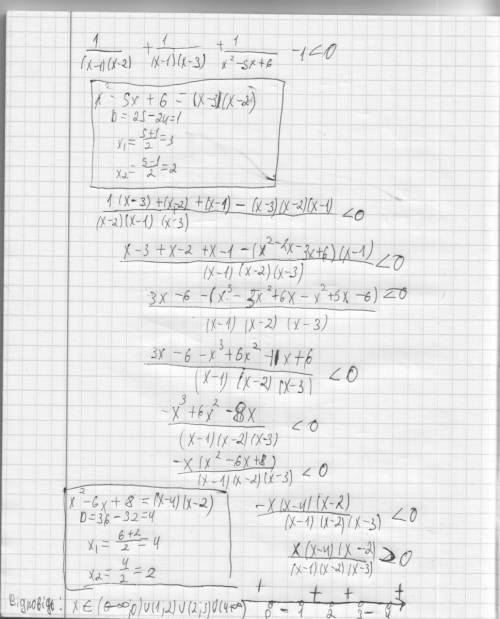 1/((x-1)(x-2)) + 1/((x-1)(x-3)) + 1/(x²-5x+6) -1<0
x² - 5x + 6 = (x-3)(x-2)
D = 25-24=1
x₁ = (5+1)/2 = 3
x₂ = (5-1)/2 = 2
(1(x-3) + (x-2) + (x-1) - (x-3)(x-2)(x-1))/((x-2)(x-1)(x-3)) <0
(x-3 + x-2 + x-1 - (x²-2x-3x+6)(x-1))/((x-1)(x-2)(x-3)) <0
(3x - 6 - (x³ - 5x² + 6x - x² + 5x - 6))/((x-1)(x-2)(x-3)) <0
(3x - 6 - x³ + 6x² - 11x + 6)/((x-1)(x-2)(x-3)) <0
(-x³ + 6x² - 8x)/((x-1)(x-2)(x-3)) <0
(-x(x² - 6x + 8))/((x-1)(x-2)(x-3)) <0
x² - 6x + 8 = (x-4)(x-2)
D = 36 - 32 = 4
x₁ = (6+2)/2 = 4
x₂ = 4/2 = 2
(-x(x-4)(x-2))/((x-1)(x-2)(x-3)) <0
(x(x-4)(x-2))/((x-1)(x-2)(x-3)) >0
+ - + + - +
0 1 2 3 4
Відповідь: x ∈ (-∞;0)∪(1;2)∪(2;3)∪(4;+∞)